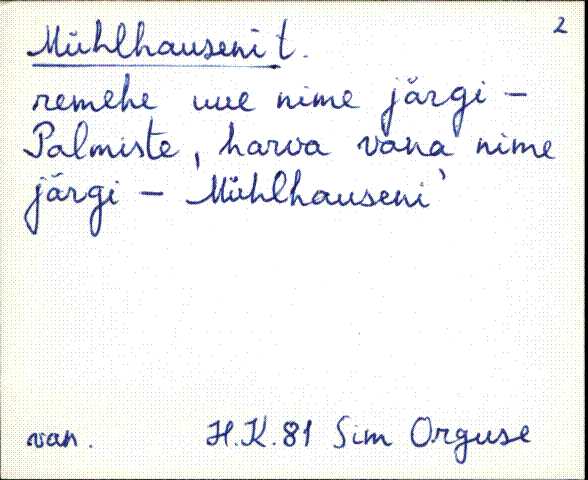 2
Mühlhauseni t.
remehe uue nime järgi –
Palmiste, harva vana nime
järgi – Mühlhauseni'
van. H.K.81 Sim Orguse